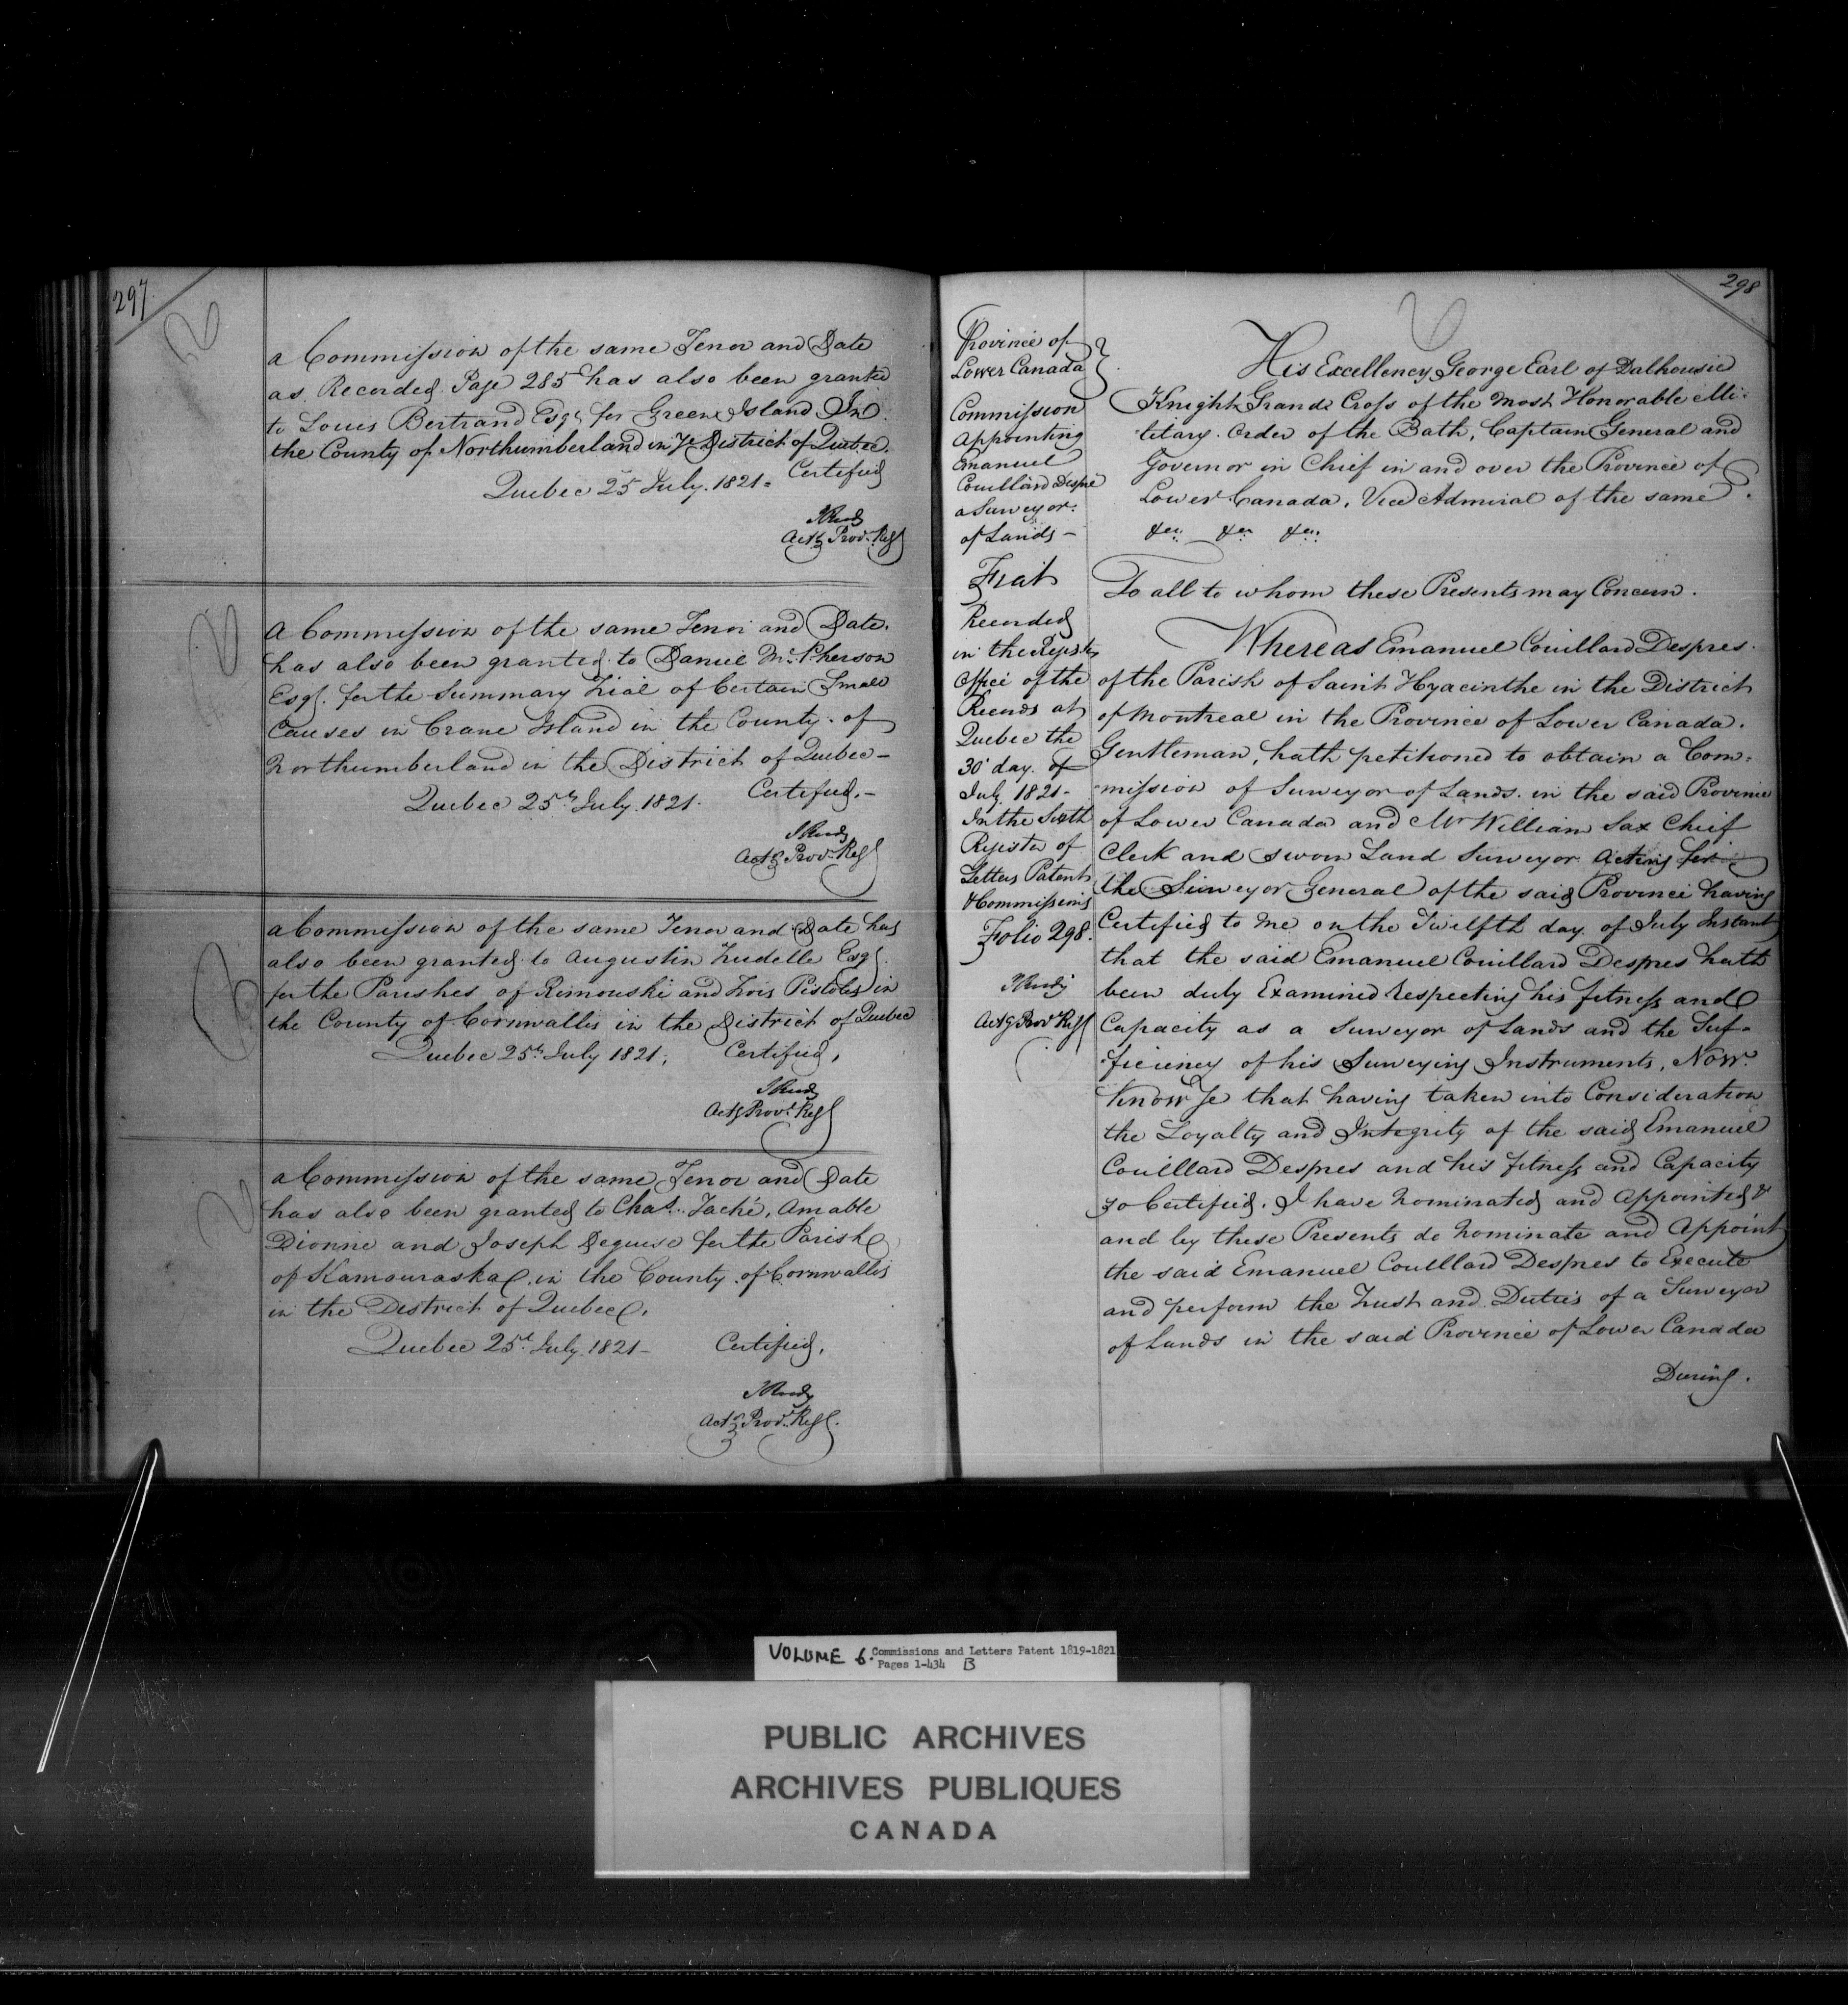 297
a Commission of the same Tenor and Date
as Recorded Page 285 has also been granted
to Louis Bertrand Esqr. for Green Island In
the County of Northumberland in Ye District of Quebec.
Quebec 25 July. 1821. Certified
Actg Prov. Regr
A Commission of the same Tenor and Date.
has also been granted to Daniel McPherson
Esqr. for the Summary Trial of Certain Small
Causes in Crane Island in the County of
Northumberland in the District of Quebec-
Quebec 25th July 1821. Certified.-
Actg Prov. Regr
a Commission of the same Tenor and Date has
also been granted to Augustin Trudelle Esqr.
for the Parishes of Rimouski and Trois Pistoles in
the County of Cornwallis in the District of Quebec
Quebec 25th July 1821. Certified,
Actg Provl Regr
a Commission of the same Tenor and Date
has also been granted to Chas. Taché, Amable
Dionne and Joseph Deguise for the Parish
of Kamouraska in the County of Cornwallis
in the District of Quebec.
Quebec 25th July 1821- Certified,
Actg Provl Regr.
298
Province of
Lower Canada
Commission
Appointing
Emanuel
Couillard Despre
a Surveyor
of Lands-
Fiat
Recorded
in the Register
Office of the
Records at
Quebec the
30th day of
July 1821-
In the Sixth
Register of
Letters Patents
& Commissions
Folio 298.
Actg Provl Regr
His Excellency George Earl of Dalhousie
Knight Grand Cross of the Most Honorable Mili-
tary Order of the Bath, Captain General and
Governor in Chief in and over the Province of
Lower Canada, Vice Admiral of the same.
&ca. &ca &ca.
To all to whom these Presents may Concern.
Whereas Emanuel Couillard Despres
of the Parish of Saint Hyacinthe in the District
of Montreal in the Province of Lower Canada.
Gentleman, hath petitioned to obtain a Com-
mission of Surveyor of Lands in the said Province
of Lower Canada and Mr William Sax Chief
Clerk and sworn Land Surveyor Acting for
the Surveyor General of the said Province having
Certified to me on the Twelfth day of July Instant
that the said Emanuel Couillard Despres hath
been duly Examined respecting his fitness and
Capacity as a Surveyor of Lands and the Suf-
ficiency of his Surveying Instruments, Now
Know Ye that having taken into Consideration
the Loyalty and Integrity of the said Emanuel
Couillard Despres and his fitness and Capacity
so Certified. I have Nominated and Appointed &
and by these Presents do Nominate and Appoint
the said Emanuel Couillard Despres to Execute
and perform the Trust and Duties of a Surveyor
of Lands in the said Province of Lower Canada
During.
VOLUME 6. Commissions and Letters Patent 1819-1821
Pages 1-434 B
PUBLIC ARCHIVES
ARCHIVES PUBLIQUES
CANADA